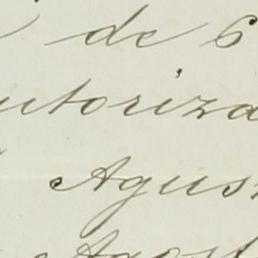 de 6
utoriza
Agus
Agost